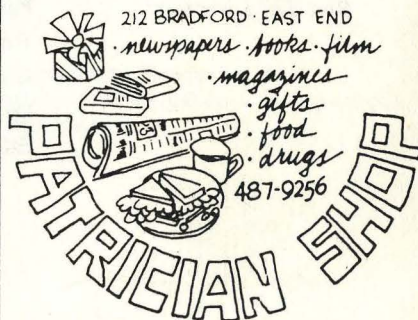 212 BRADFORD · EAST END
· newspapers · books · film
· magazines
· gifts
· food
· drugs
487-9256
PATRICIAN SHOP